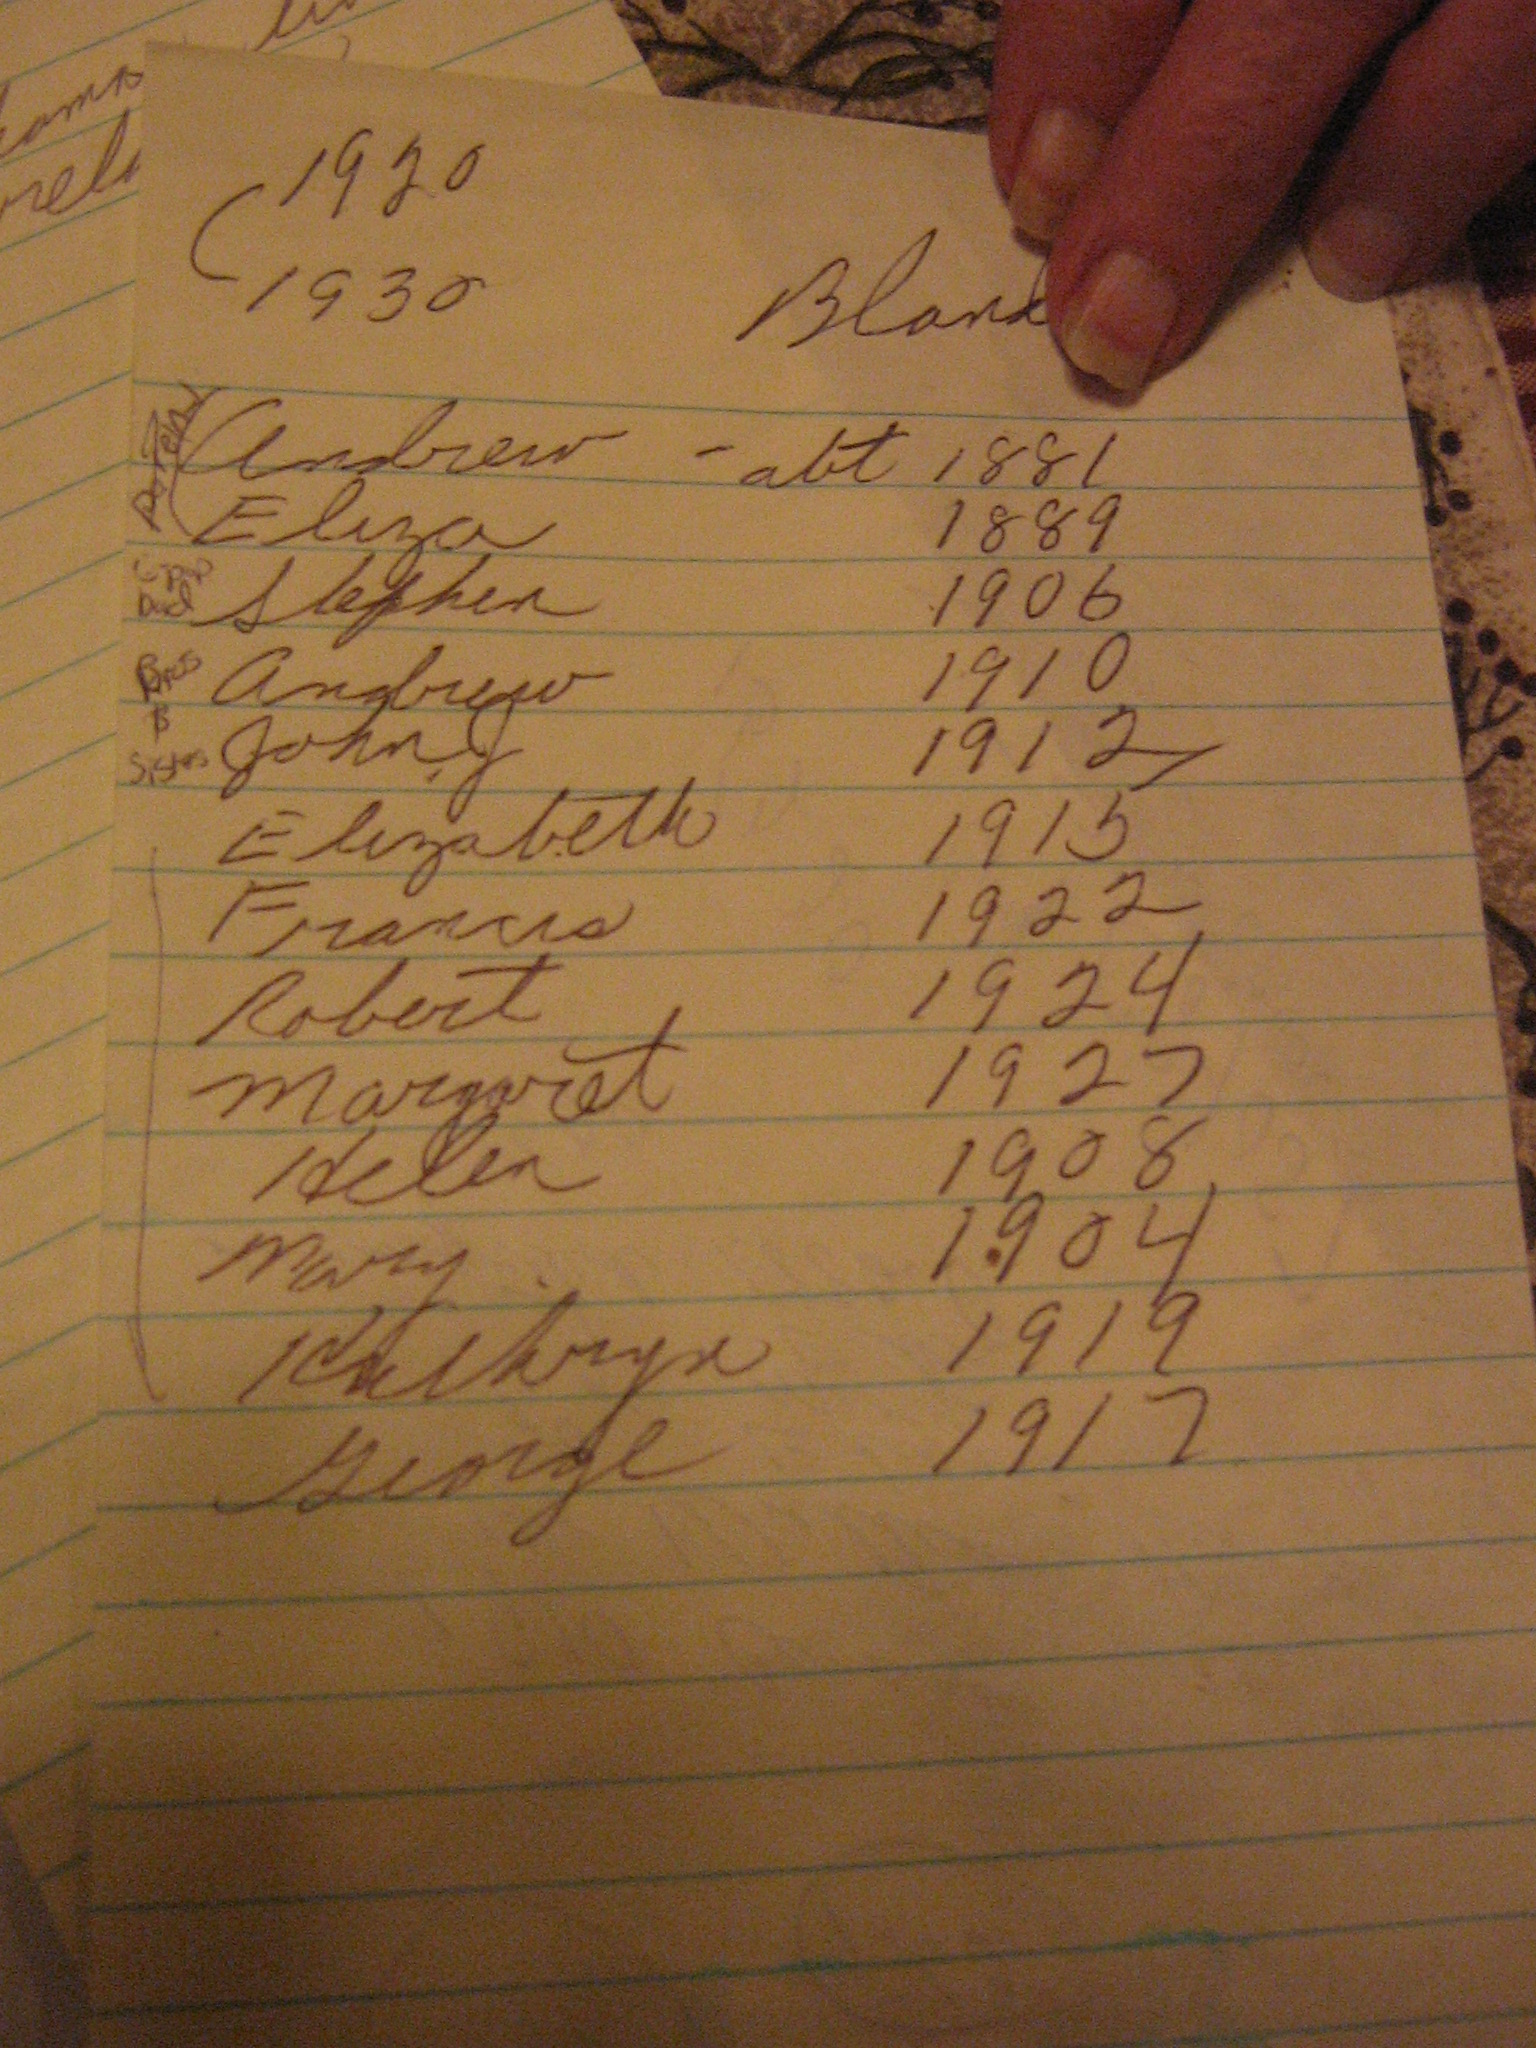 1920
1930
Bland
Parents
Andrew - abt 1881
Eliza 1889
Dad Stephen 1906
Bros Andrew 1910
Sisters John J 1912
Elizabeth 1915
Francis 1922
Robert 1924
Margaret 1927
Helen 1908
Mary 1904
Kathryn 1919
George 1917